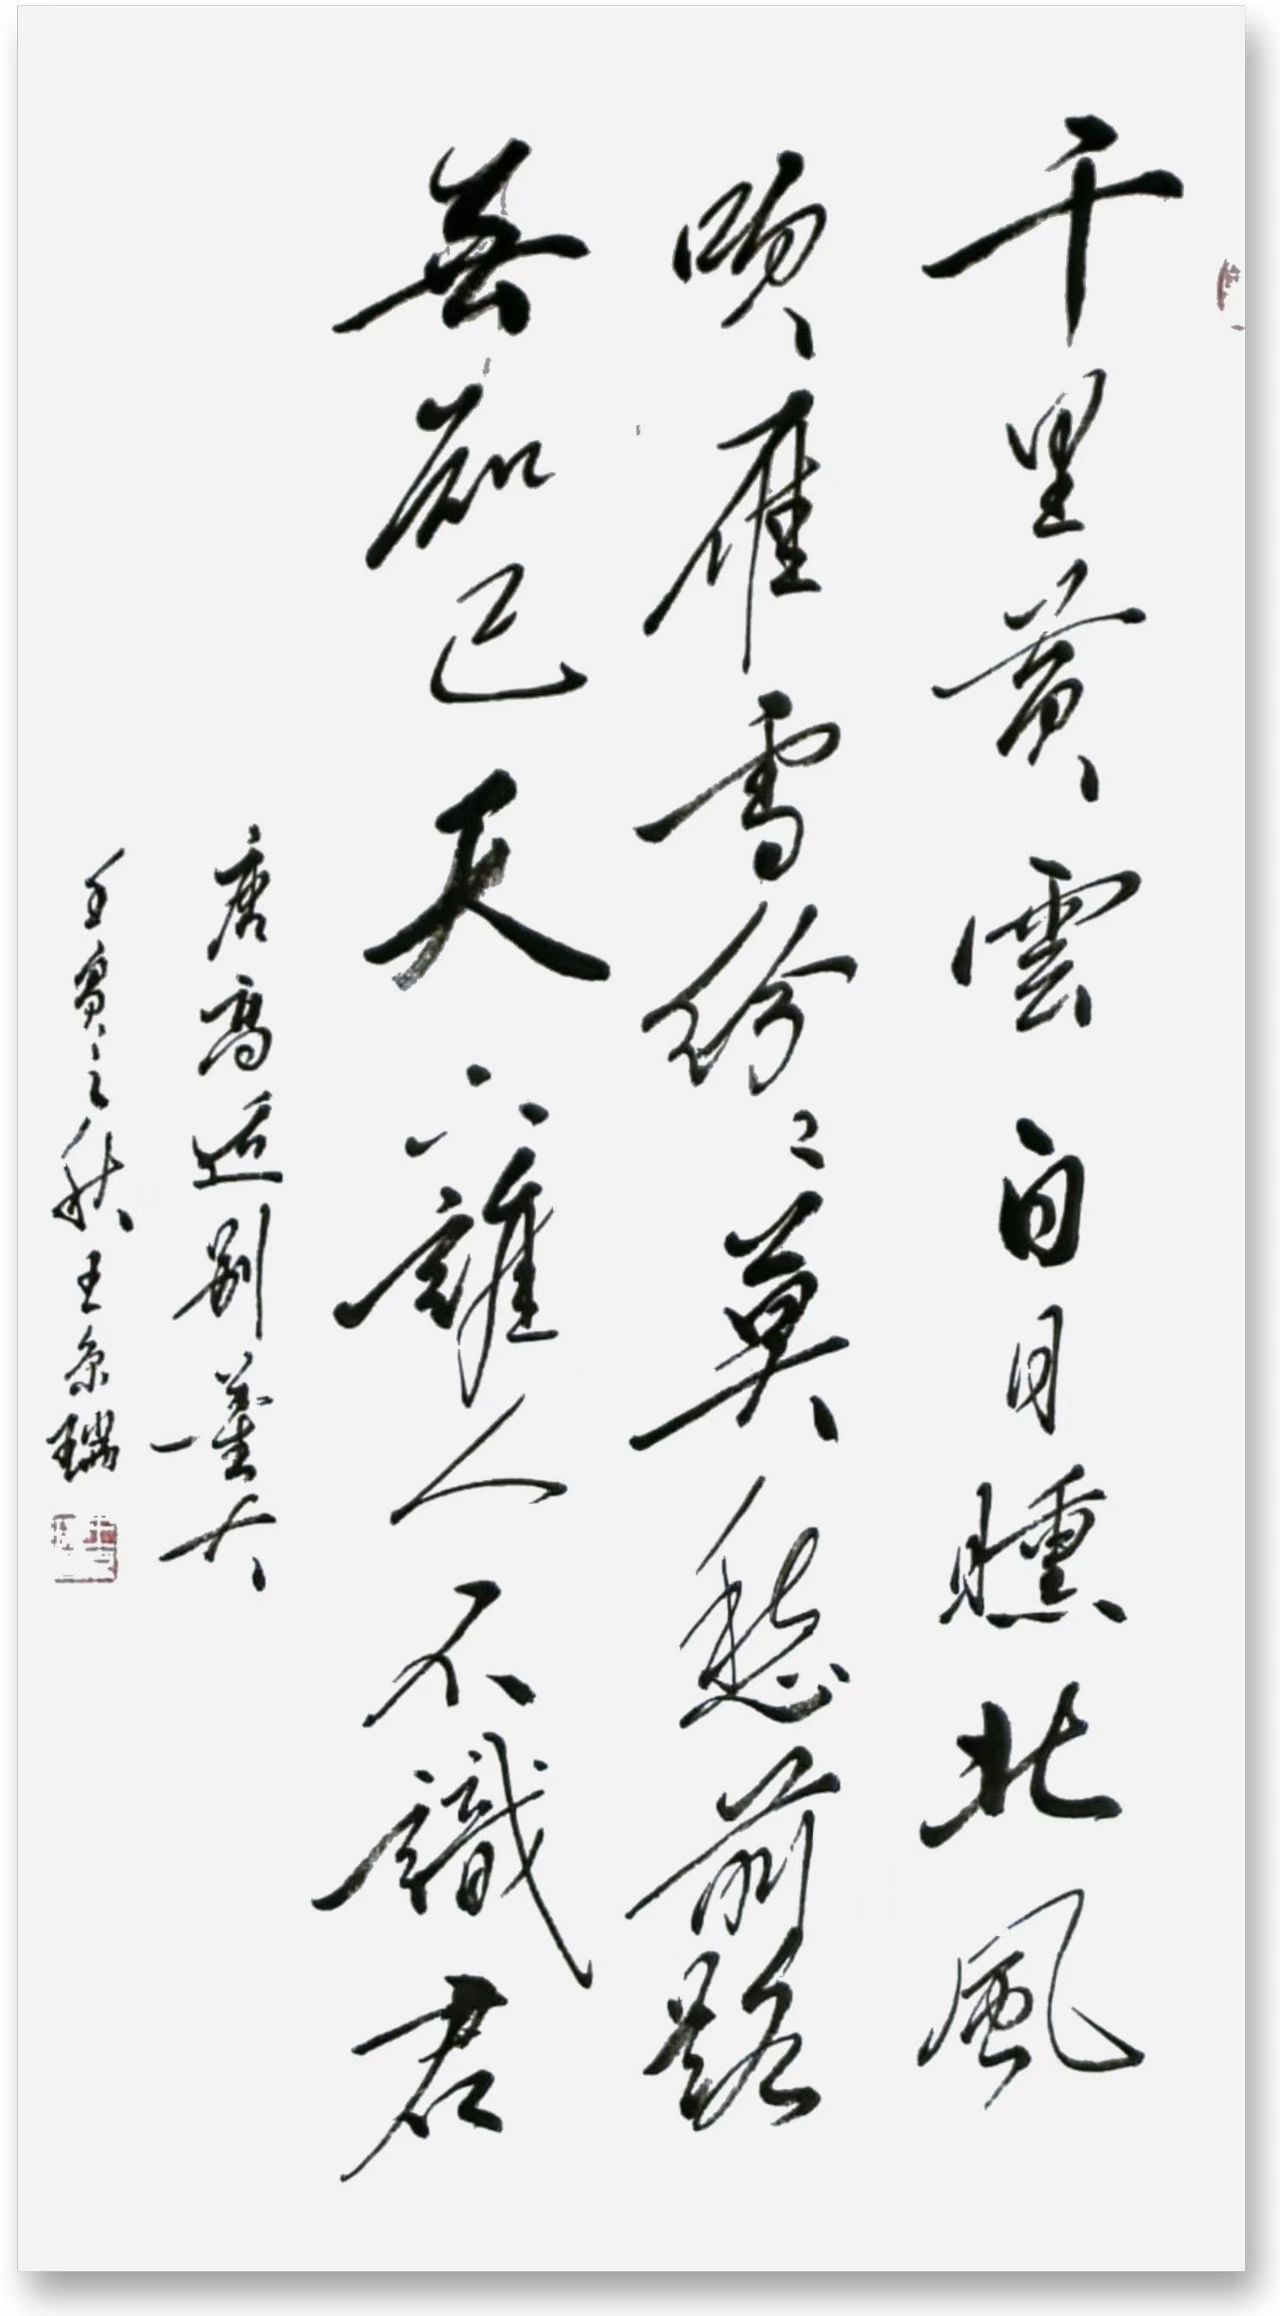 千里黄雲白日曛北風
吹雁雪紛〻莫愁前路
無知己天下誰人不識君
唐高适别董大
壬寅之秋王京瑞